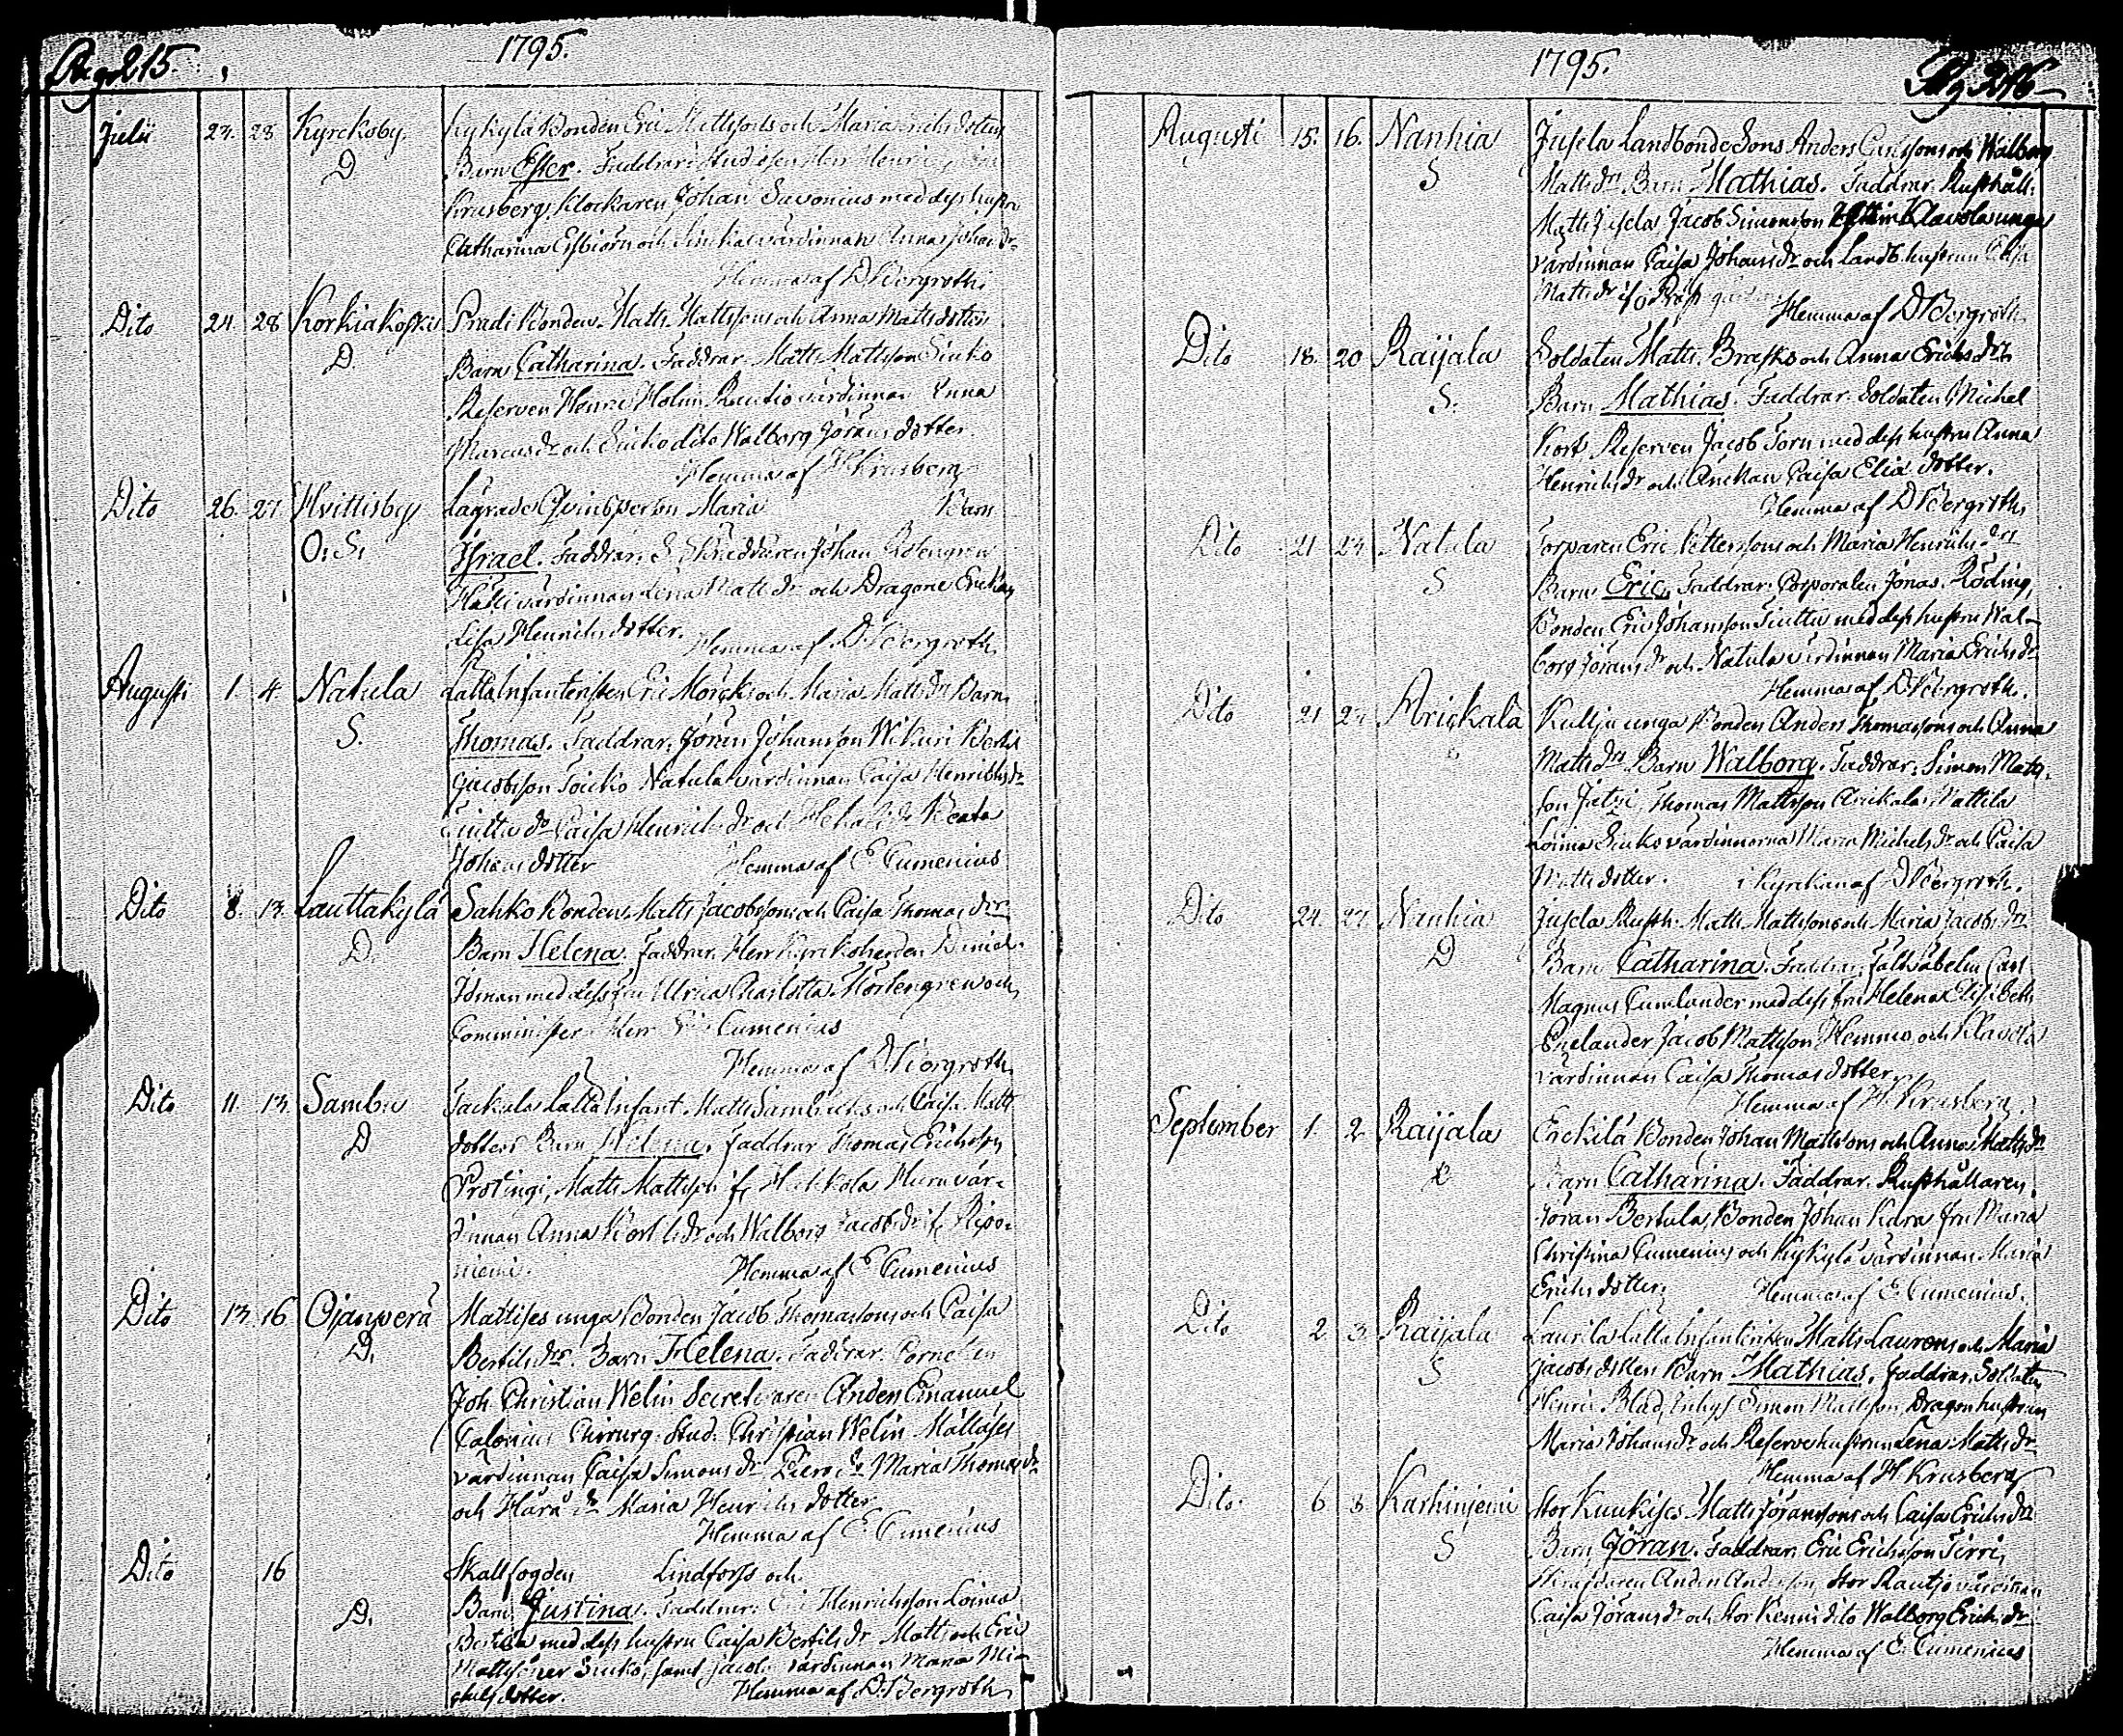 Pag. 215.
1795.
Julii 27. 28 Kyrckoby. Kykylä Bonden Eric Mattssons och Maria Erichs dotters
D Barn Ester. Faddrar: Studiosen Herr Henric
Krusberg, Klockaren Johan Savonius med dess hustru
Catharina Esbiörn och Sinckac värdinnan Anna Johans dr
Hemma af D. Bergroth.
Dito 24 28 Korkiakoski Pradi Bonden Matts Mattssons och Anna Matts dotters
D. Barn Catharina. Faddrar. Matts Mattsson Siuko
Reserven Henric Holm Rautio värdinnan Anna
Marcus dr och Siuko dito Walborg Jörans dotter.
Hemma af H. Krusberg
Dito 26. 27 Hvittisby Lägrade Qvinsperson Maria Barn
O: S: Israel. Faddrar. S. Skräddaren Johan Rosengren
värdinnan Lena Matts dr och Dragone Enckan
Lisa Henrichs dotter. Hemma af D. Bergroth.
Augusti 1. 4. Natula Lätta Infanteristen Eric Mörcks och Maria Matts drs Barn
S. Thomas. Faddrar. Jören Johansson Wikari Bertil
Jacobsson Soicko Natula värdinnan Caisa Henrichs dr
do Caisa Henrichs dr och do Beata
Johans dotter Hemma af E. Cumenius
Dito 8. 13. Lauttakylä Sahko Bonden Matts Jacobssons och Caisa Thomas drs
D. Barn Helena. Faddrar. Herr Kyrckoherden Daniel
Idman med dess fru Ulrica Charlotta Mörtengren och
Comminister Herr Eric Cumenius
Hemma af D. Bergroth.
Dito 11. 13 Sambu Lätta Infant. Matts Sambergs och Caisa Matts
D dotters Barn Helena. Faddrar Thomas Erichsson
Protingi, Matts Mattsson if. Huhkola Hurn vär-
dinnan Anna Bertils dr och Walborg Jacobs dr if. Ripo-
niemi. Hemma af E. Cumenius
Dito 13. 16 Ojanperä Mattises unga Bonden Jacob Thomassons och Caisa
D. Bertils drs. Barn Helena. Faddrar. Corneten
Joh. Christian Welin Secreteraren Anders Emanuel
Calonius Chirurg. Stud. Christian Welin Mattases
värdinnan Caisa Simons dr Piero do Maria Thomas dr
och Hara do Maria Henrichs dotter
Hemma af E. Cumenius
Dito 16 Skallfogden Lindforss och
D. Barn Justina. Faddrar: Eric Henrichsson Loima
Bertila med dess hustru Caisa Bertils dr Matts och Eric
Mattssöner Siuko, samt Jacola värdinnan Maria Mi-
chels dotter. Hemma af D. Bergroth
1795.
Pag. 216
Augusti 15. 16. Nanhia Jusela Landbonde Sons Anders Carlssons och Walborg
S Matts drs Barn Mathias. Faddrar. Rusthåll.
Matts Jusela Jacob Simonsson Klavola unga
värdinnan Caisa Johans dr och Landb. hustrun Elisa
Matts dr Hemma af D. Bergroth
Dito 18. 20 Raijala Soldaten Matts Brasks och Anna Erichs drs
S. Barn Mathias. Faddrar. Soldaten Michel
Kort Reserven Jacob Torn med dess hustru Anna
Henrichs dr och Änckan Caisa Eliæ dotter.
Hemma af D. Bergroth
Dito 21 24 Natula Torparen Eric Petterssons och Maria Henrichs drs
S Barn Eric. Faddrar. Corporalen Jonas Röding,
Bonden Eric Johansson med dess hustru Wal-
borg Jörans dr och Natula värdinnan Maria Erichs dr
Hemma af D. Bergroth.
Dito 21 27 Arickala Kullju unga Bonden Anders Thomassons och Anna
Matts drs Barn Walborg. Faddrar. Simon Matts-
son Jutzi, Thomas Mattsson Arickala, Mattila
Loima Siuko värdinnorna Maria Michels dr och Caisa
Matts dotter. i Kyrckan af D. Bergroth.
Dito 24. 27 Nanhia Jusela Rusth. Matts Mattssons och Maria Jacobs drs
D Barn Catharina. Faddrar. Fältväbeln Carl
Magnus Cumlander med dess fru Helena Elisabeth
Enelander Jacob Mattsson Hemmo och Klavola
värdinnan Caisa Thomas dotter
Hemma af H. Krusberg.
September 1. 2 Raijala Erckilä Bonden Johan Mattssons och Anna Matts drs
D Barn Catharina. Faddrar. Rusthållaren
Jöran Bertula, Bonden Johan Kara fru Maria
Christina Cumenius och Kykylä värdinnan Maria
Erichs dotter. Hemma af E. Cumenius.
Dito 2 3 Raijala Laurila Lätta Infanteristen Matts Laurens och Maria
S Jacobs dotters Barn Mathias. Faddrar. Soldaten
Henric Blad, Inhys Simon Mattsson, Dragon hustrun
Maria Johans dr och Reservs hustrun Lena Matts dr
Hemma af H. Krusberg
Dito 6 8 Karhiniemi Stor Kuukises Matts Jöranssons och Caisa Erichs drs
S Barn Jöran. Faddrar. Eric Ericsson Sirri,
Anders Andersson, Stor Rautjo värdinnan
Caisa Jörans dr och Stor Kenni dito Walborg Erichs dr
Hemma af E. Cumenius